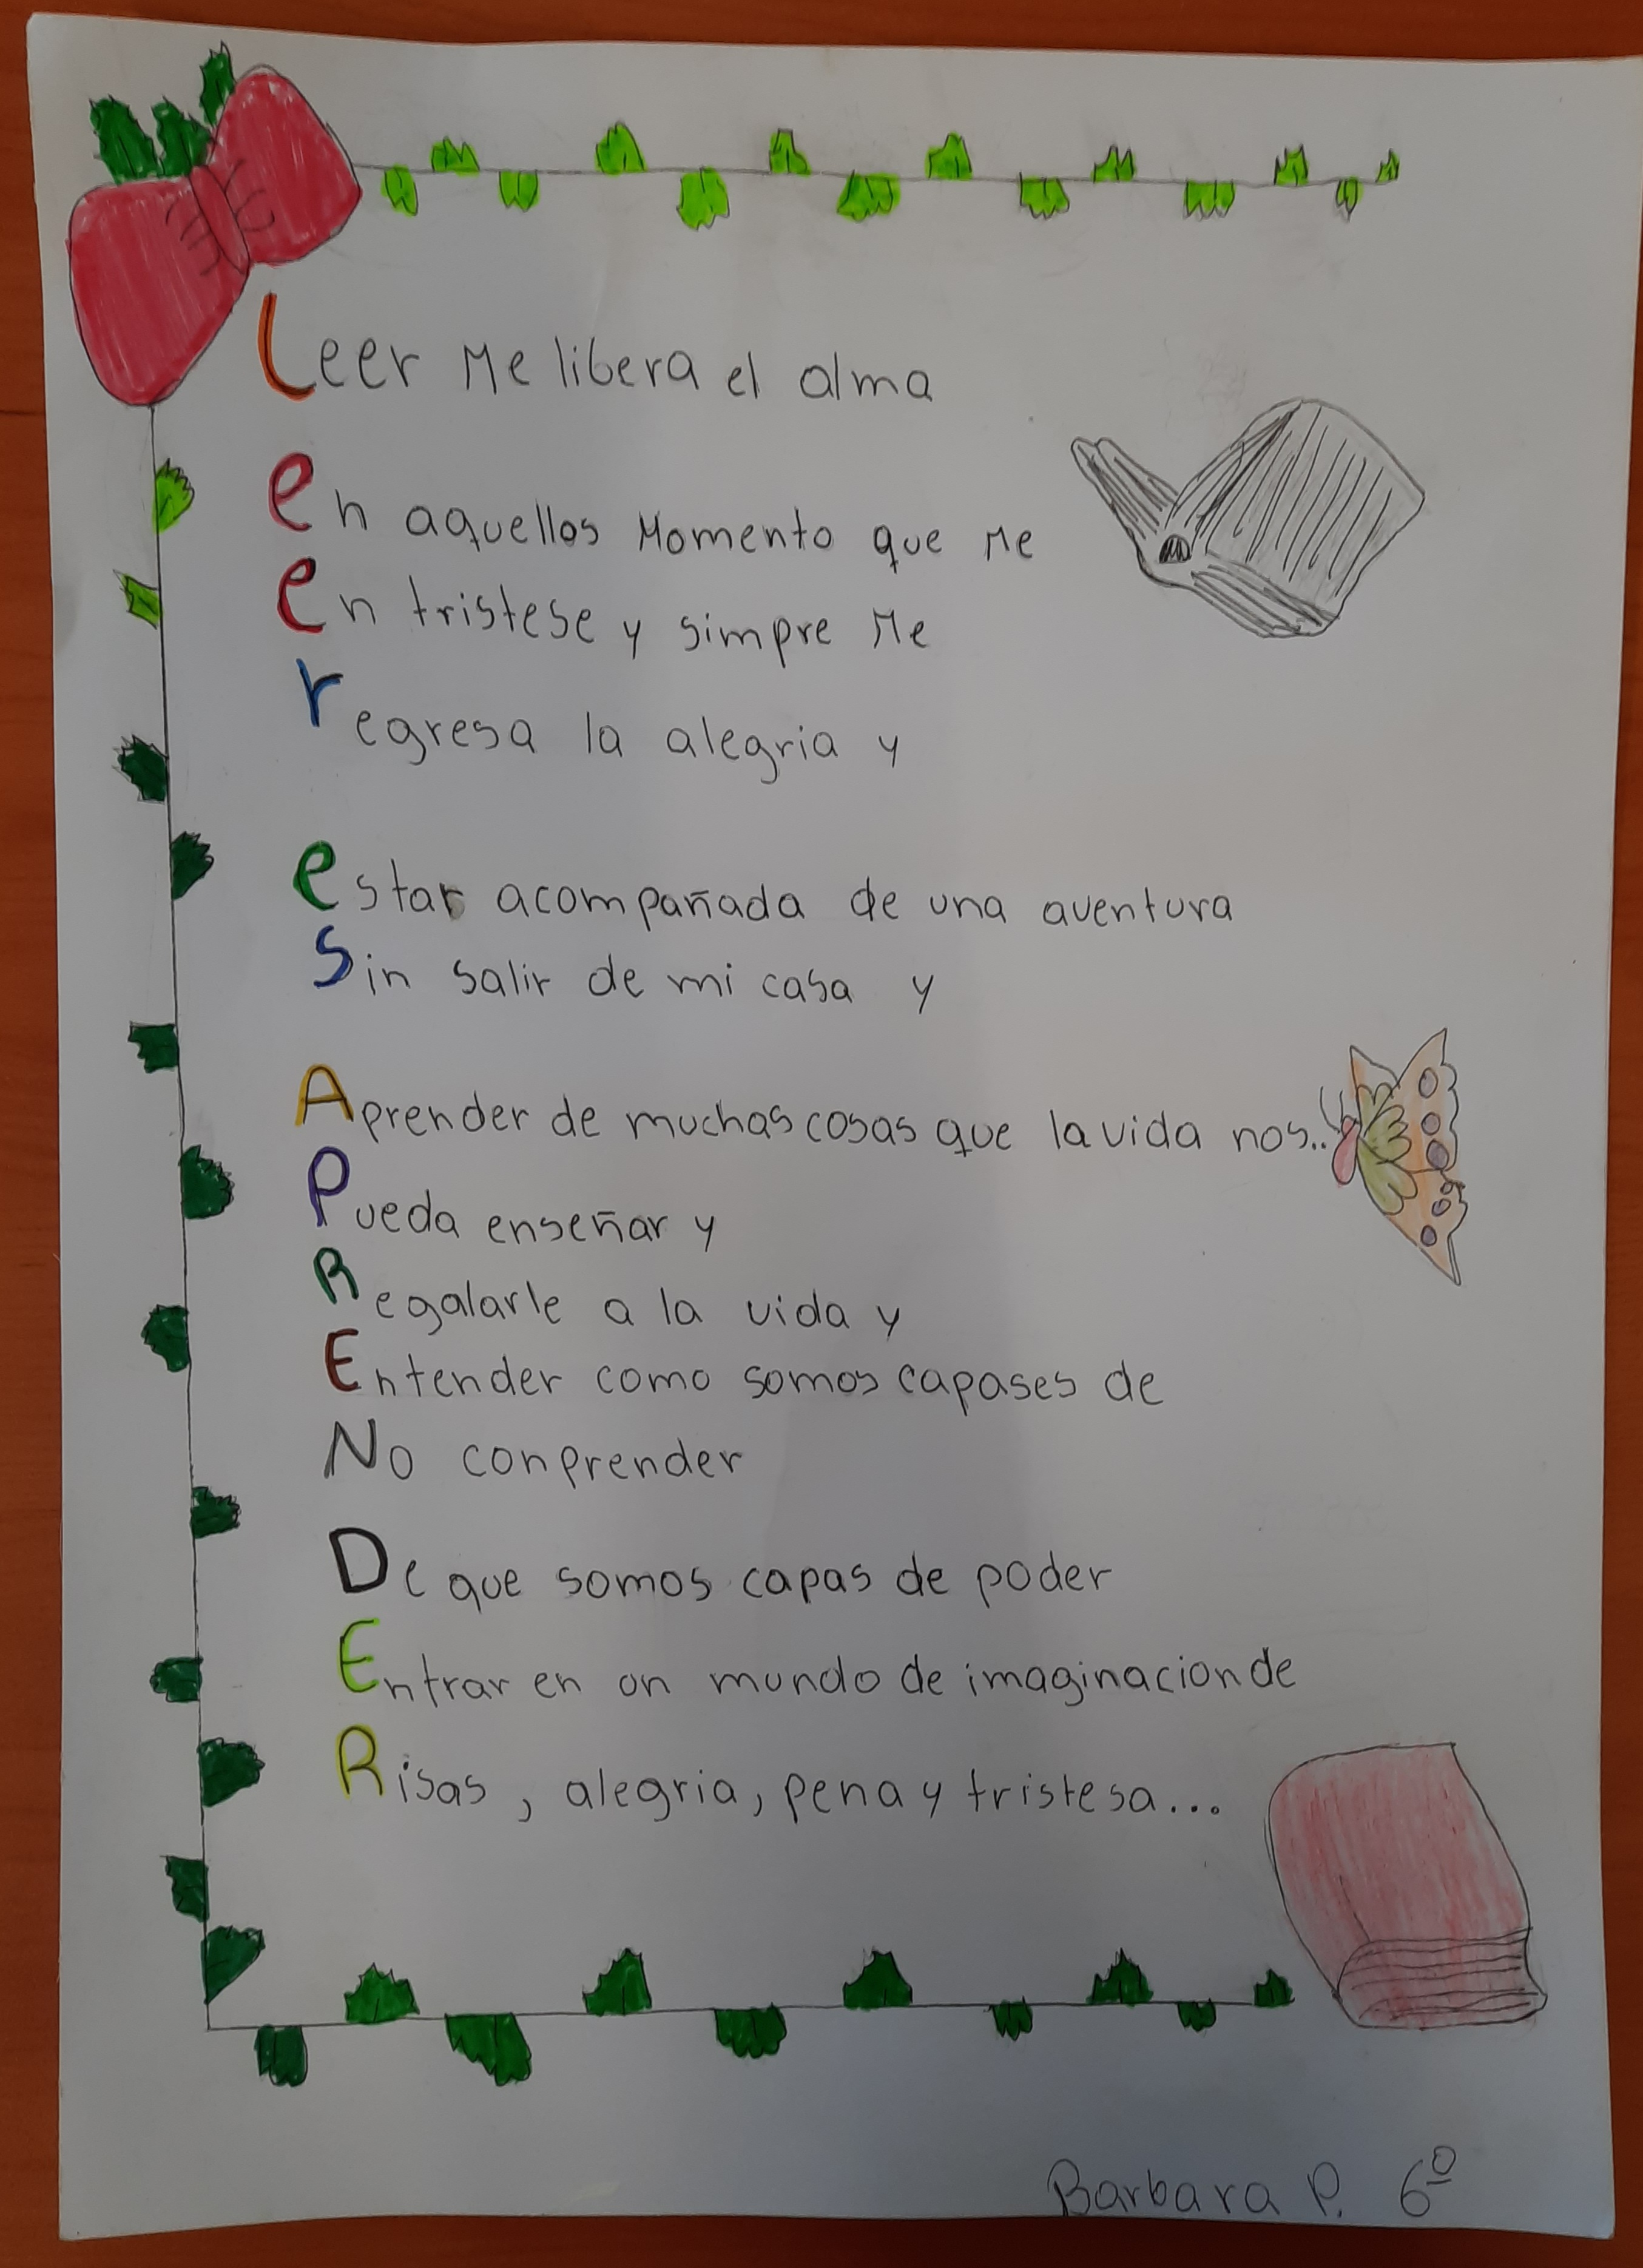 Leer Me libera el alma
en aquellos Momento que Me
en tristese y simpre Me
regresa la alegria y
estar acompañada de una aventura
Sin salir de mi casa y
Aprender de muchas cosas que la vida nos..
Pueda enseñar y
Regalarle a la vida y
Entender como somos capases de
No conprender
De que somos capas de poder
Entrar en un mundo de imaginacion de
Risas, alegria, pena y tristesa...
Barbara P. 6º